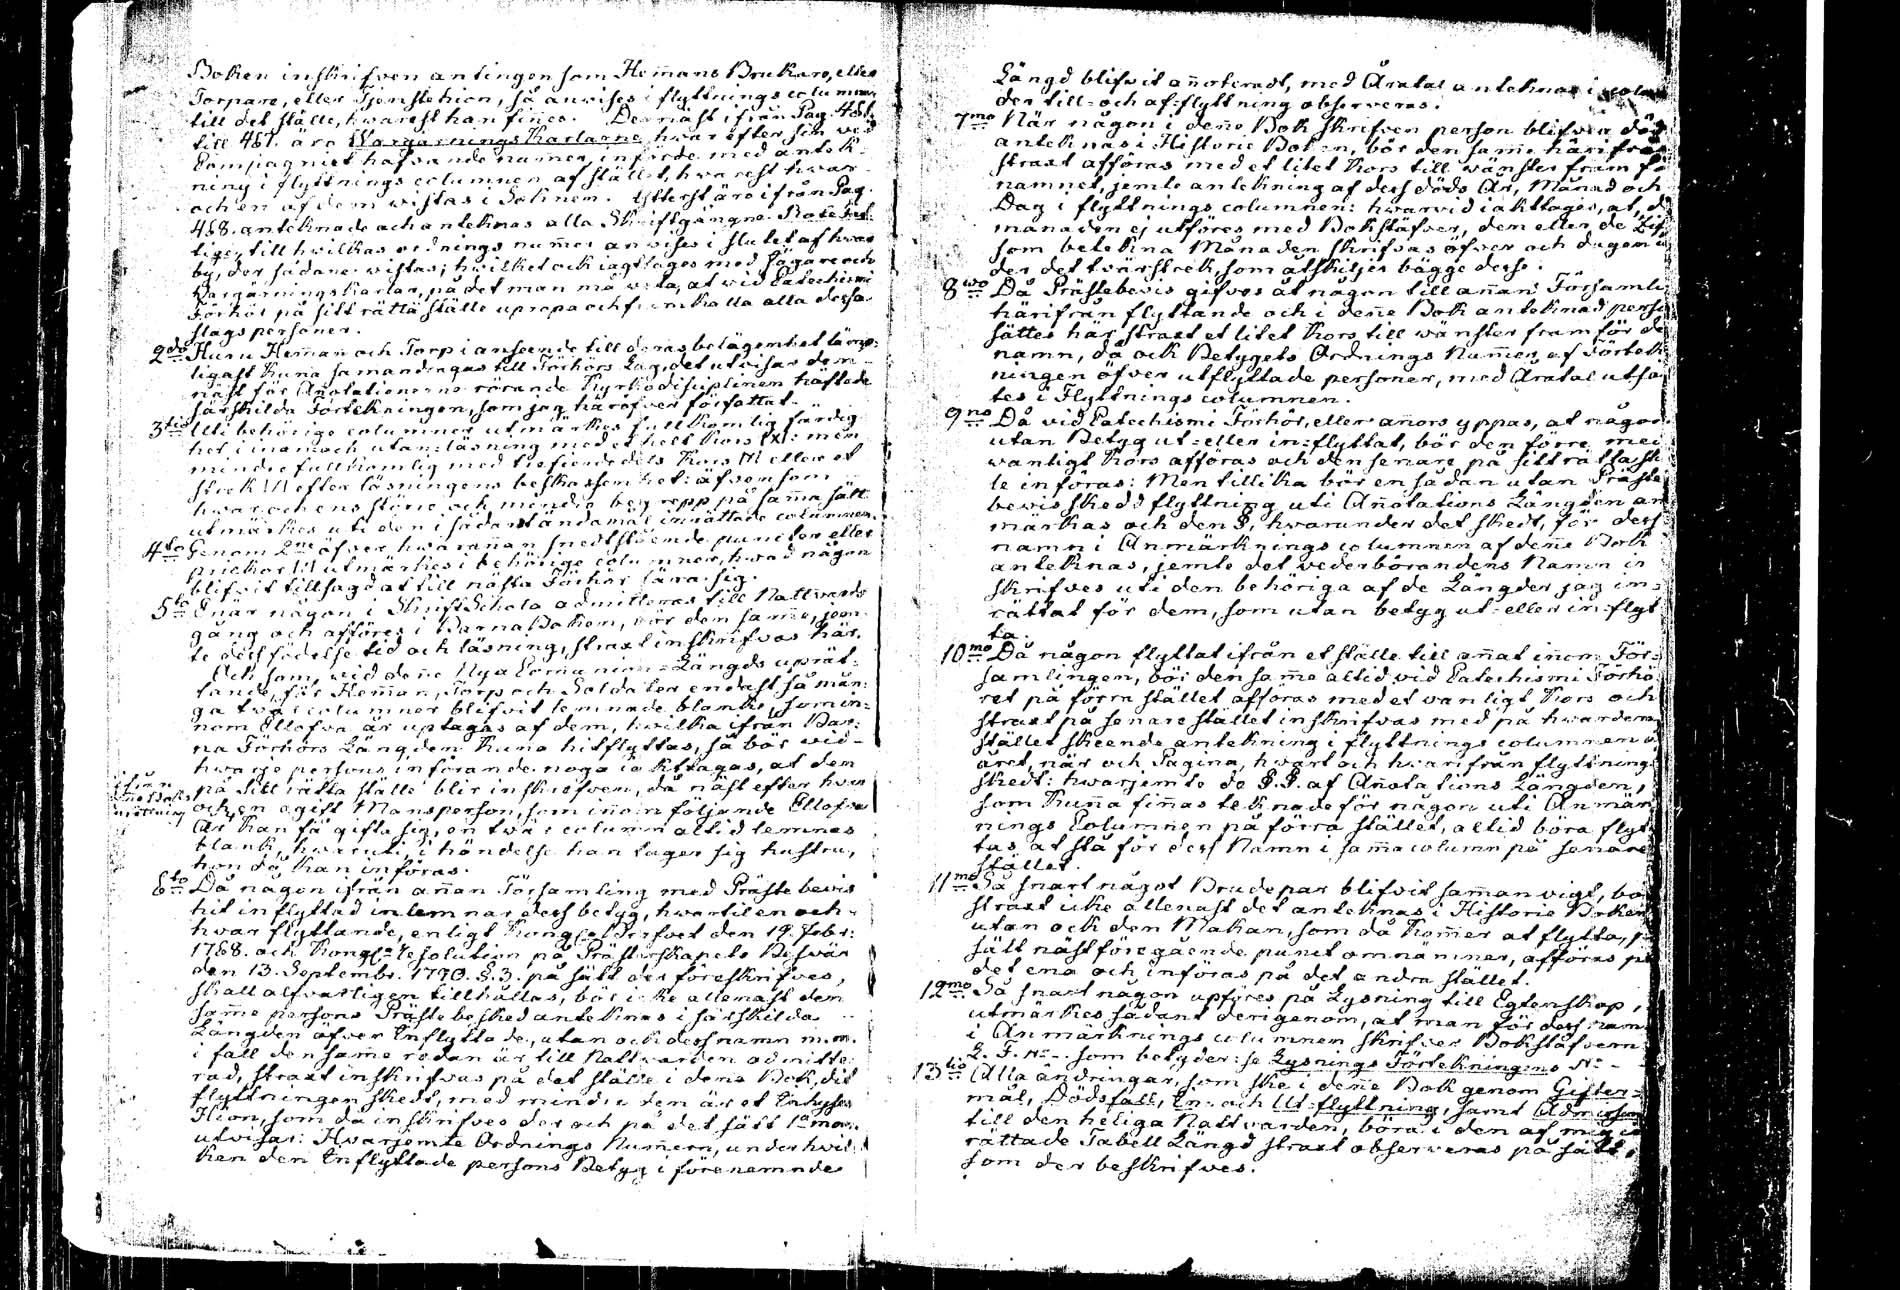 Boken inskrifven antingen som Hem̄ans Brukare, eller
Torpare, eller Tjenstehion, så anvises i flyttnings columnen
till det ställe, hwarest han fin̄es. Dernäst ifrån Pag. 481.
till 487. äro Wargärnings Karlarne, hvar efter sin ved
Compagniet hafvande num̄er, införde med anteck-
ning i flyttnings columnen af stället, hvarest hvar
och en af dem vistas i Soknen. Ytterst äro ifrån Pag.
488. antecknade och antecknas alla Skriftgångne Rote
tiger, till hwilkas ordnings num̄er anvises i slutet af hvar
by, der sådane vistas; hwilket ock iagttages med Jägare och
Wargärnings Karlar, på det man må veta, at vid Catechismi
Förhör på sitt rätta ställe upropa och framkalla alla dessa
slags personer.
2do Huru Hem̄an och Torp i anseende till deras belägenhet lämp-
ligast kuna sam̄andragas till Förhörs Lag, det utvisar den
näst för An̄otationerne rörande Kyrkodisciplinen häftade
särskilda Förtekningen, som jag häröfver författat.
3tio Uti behörige columner utmärkes fullkomlig färdig-
het i innan och utan-läsning med et helt Kors men
mindre fullkomlig med trefjerdedels Kors eller et
strek efter läsningens beskaffenhet: äfvensom
hwar och ens större och mindre begrepp på sam̄a sätt
utmärkes uti den i sådant ändamål inrättade columnen.
4to Genom 2ne öfver hwaran̄an snedtstående puncter eller
prickar utmärkes i behörige columner, hvad någon
blifvit tillsagd at till nästa Förhör lära sig.
5to Enär någon i SkriftSchola admitteras till Nattvards
gång och afföres i BarnaBoken, bör den sam̄e, jem-
te dess födelse tid och läsning, strax inskrifvas här.
Och som, vid den̄e Nya Com̄union-Längds uprät-
tande, för Hem̄an, Torp och Soldater endast så mån-
ga tvär columner blifvit lemnade blanke, som in-
nom Ellofva år uptagas af dem, hwilka ifrån Bar-
na Förhörs Längden kuna hitflyttas, så bör vid
hwarje persons införande noga i akttagas, at den
på sitt rätta ställe blir inskrefven, då näst efter hvar
och en ogift Mansperson, som in̄om följande Ellofva
År kan få gifta sig, en twär column altid lemnas
blank, hwaruti, i händelse han tager sig hustru,
hon då kan införas.
6to Då någon ifrån an̄an Församling med Prästebevis
hit inflyttad inlemnar dess betyg, hwartil en och
hvar flyttande, enligt Kongl. Brefvet den 19. Febr:
1768. och Kongl. Resolution på Prästerskapets Besvär
den 13. Septembr. 1770. §. 3. på sätt der föreskrifves,
skall alfvarligen tillhållas, bör icke allenast den
sam̄e persons Prästebesked antecknas i särskilda
Längden öfver Inflyttade, utan ock dess namn m. m.
i fall den sam̄e redan är till Nattvarden admitte-
rad, strax inskrifvas på det ställe i den̄a Bok, dit
flyttningen skedt, med mindre den är et Inhyses
Hion, som då inskrifves der och på det sätt 1mo
utvisar: Hvarjemte Ordnings Num̄ern, under hvil-
ken den Inflyttade persons Betyg i förenemnde
Längd blifvit an̄oteradt, med Åratal antecknas i
der till- och af-flyttning observeras.
7mo När någon i den̄e Bok skrifven person blifver död
antecknas i Historie Boken, bör den sam̄e härifrån
strax afföras med et litet Kors till wänster fram för
namnet, jemte anteckning af dess döds År, Månad och
Dag i flyttnings columnen: hwarvid i akttages, at
månaden ej utföres med Bokstäfver, den eller de
som betekna Månaden skrifvas öfver och dagen un
der det tvärstrek, som åtskiljer bägge desse.
8vo Då Prästebevis gifves åt någon till an̄an Församling
härifrån flyttande och i den̄e Bok anteknad person
sättes här strax et litet Kors till wänster framför de
namn, då ock Betygets Ordnings Num̄er af Förteck
ningen öfver utflyttade personer, med Åratal utsä
tes i Flyttnings columnen.
9no Då vid Catechismi Förhör, eller an̄ors yppas, at någon
utan Betyg ut- eller in-flyttat, bör den förre med
vanligt Kors afföras och den senare på sitt rätta stä
le införas: Men tillika bör en sådan utan Präste
bevis skedd flyttning uti An̄otations Längden an
märkas och den §, hvarunder det skedt, för dess
namn i Anmärknings columnen af den̄e Bok
antecknas, jemte det vederbörandens Namn in
skrifves uti den behöriga af de Längder jag in-
rättat för dem, som utan betyg ut- eller in-flyt
ta.
10mo Då någon flyttat ifrån et ställe till an̄at in̄om För-
samlingen, bör den sam̄e altid vid Catechismi Förhö
ret på förra stället afföras med et vanligt Kors och
strax på senare stället inskrifvas med på hwardera
stället skeende anteckning i flyttnings columnen
året, när och Pagina, hvart och hvarifrån flyttning
skedt: hwarjemte de §.§. af An̄otations Längden,
som kun̄a fin̄as tecknade för någon uti Anmärk
nings Columnen på förra stället, altid böra flyt
tas at stå för dess Namn i sam̄a column på senare
stället.
11mo Så snart något Brudepar blifvit sam̄anvigt, bör
strax icke allenast det antecknas i Historie Boken
utan ock den Makan, som då kom̄er at flytta, på
sätt nästföregående punct omnämner, afföras på
det ena och införas på det andra stället.
12mo Så snart någon upföres på Lysning till Egtenskap,
utmärkes sådant derigenom, at man för dess namn
i Anmärknings columnen skrifver Bokstäfvern
L. F. N:o - som betyder: se Lysnings Förteckningens N:o - -
13tio Alla ändringar, som ske i den̄e Bok genom Gifter-
mål, Dödsfall, In- och Ut-flyttning, samt Admission
till den heliga Nattvarden, böra i den af mig in
rättade Tabell Längd strax observeras på sätt,
som der beskrifves.